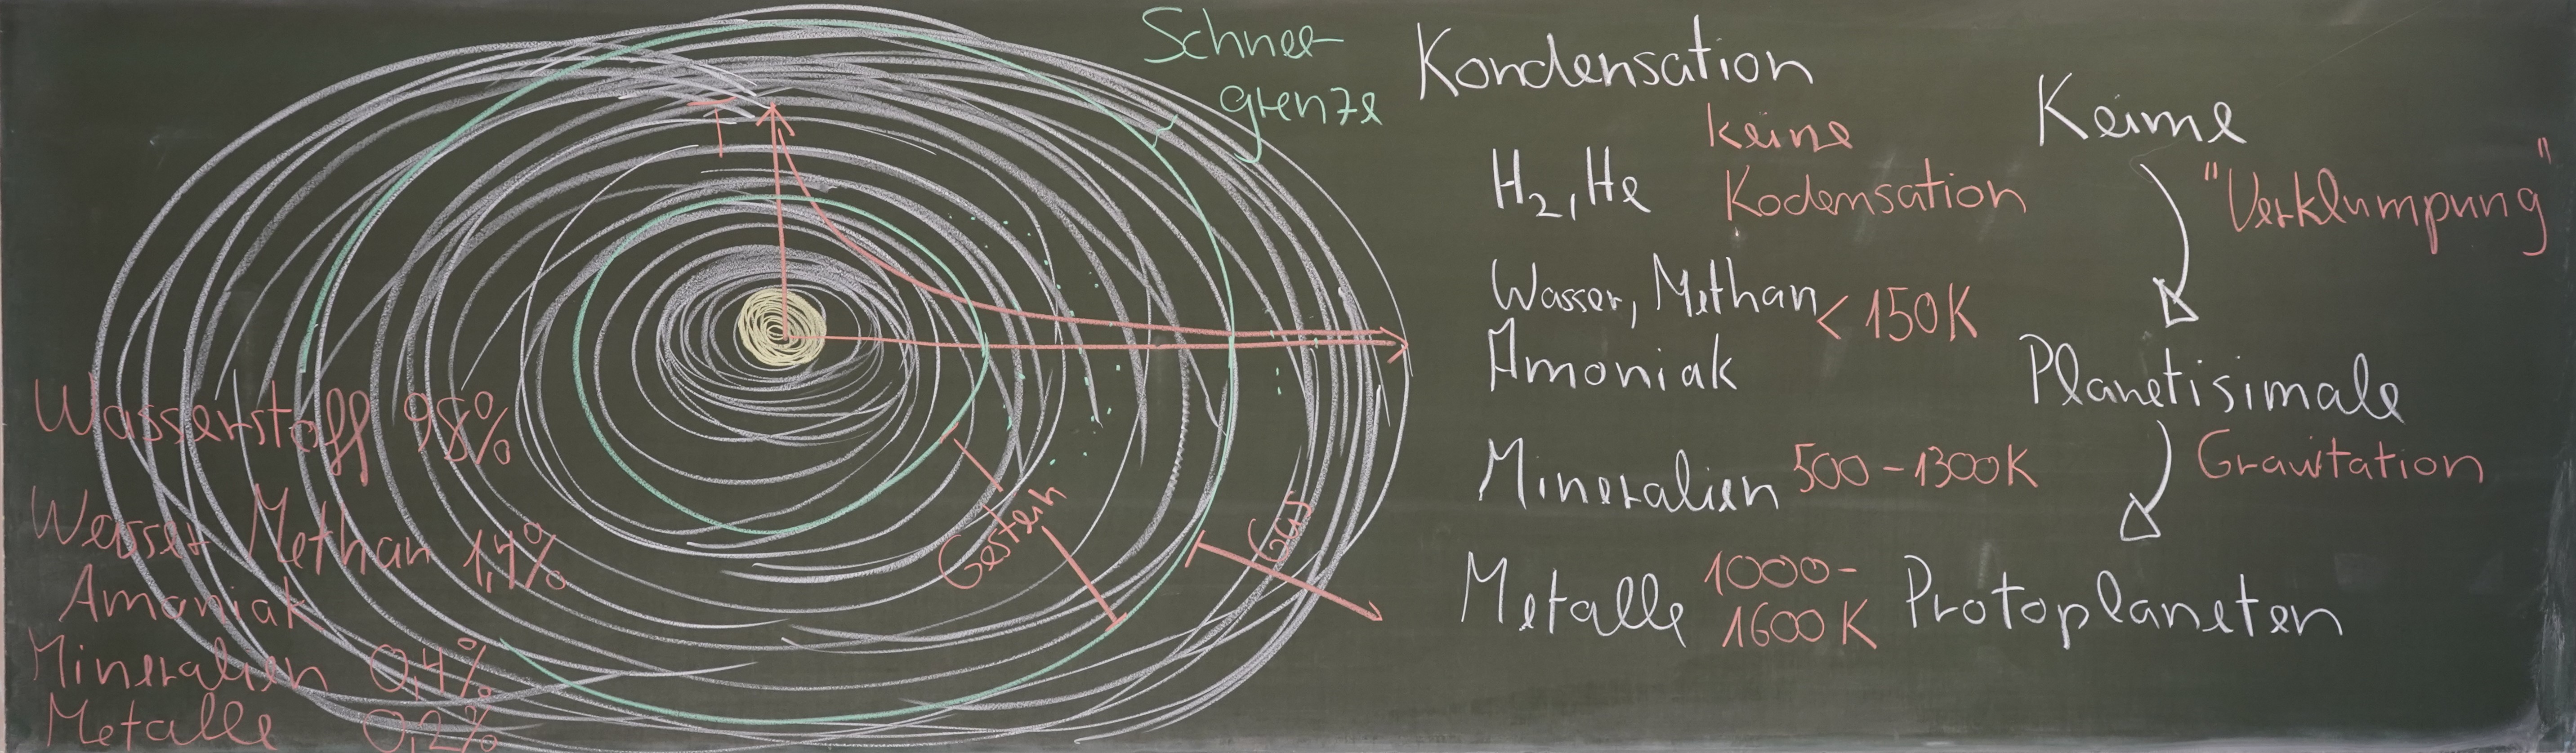 Schnee-
grenze
T
Wasserstoff 98%
Wasser Methan 1,4%
Amoniak
Mineralien 0,4%
Metalle 0,2%
Gestein
Gas
Kondensation
H2, He keine
Kodensation
Wasser, Methan < 150K
Amoniak
Mineralien 500-1300K
Metalle 1000-
1600K
Keime
"Verklumpung"
Planetisimale
Gravitation
Protoplaneten